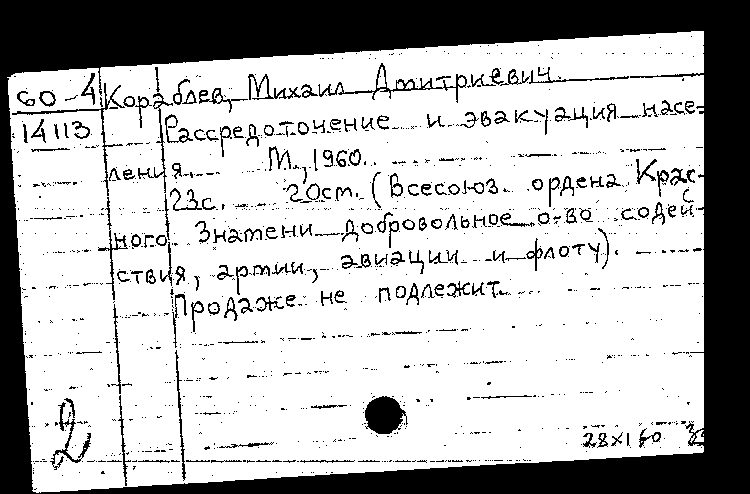 60-4 Кораблев, Михаил Дмитриевич.
14113 Рассредоточение и эвакуация насе-
ления. М., 1960.
23с. 20см. (Всесоюз. ордена Крас-
ного Знамени добровольное о-во содей-
ствия, армии, авиации и флоту).
Продаже не подлежит.
2
28XI 60